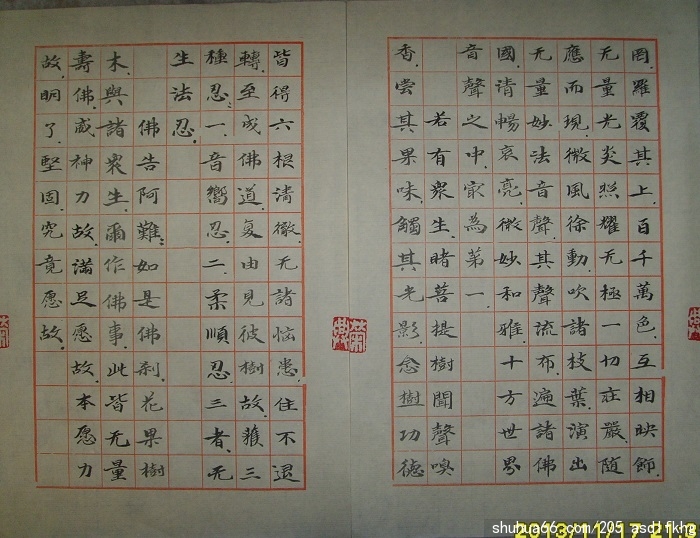 罔羅覆其上.百千萬色互相映飾.
无量光炎照耀无極一切莊嚴.隨
應而現.微風徐動.吹諸枝葉.演出
无量妙法音聲.其聲流布.遍諸佛
國.清暢哀亮.微妙和雅.十方世界
音聲之中.㝡為第一.
若有衆生.睹菩提樹聞聲嗅
香.尝其果味.觸其光影.念樹功德
皆得六根清徹.无諸惱患.住不退
轉.至成佛道.复由見彼樹故.獲三
種忍.一.音嚮忍.二.柔順忍.三者.无
生法忍.
佛告阿難.如是佛刹.花果樹
木.與諸衆生.爾作佛事.此皆无量
壽佛.威神力故.滿足愿故.本愿力
故.明了.堅固.究竟愿故.
shuhua66.com/205 asdlfkhg
2013/11/17 21:3